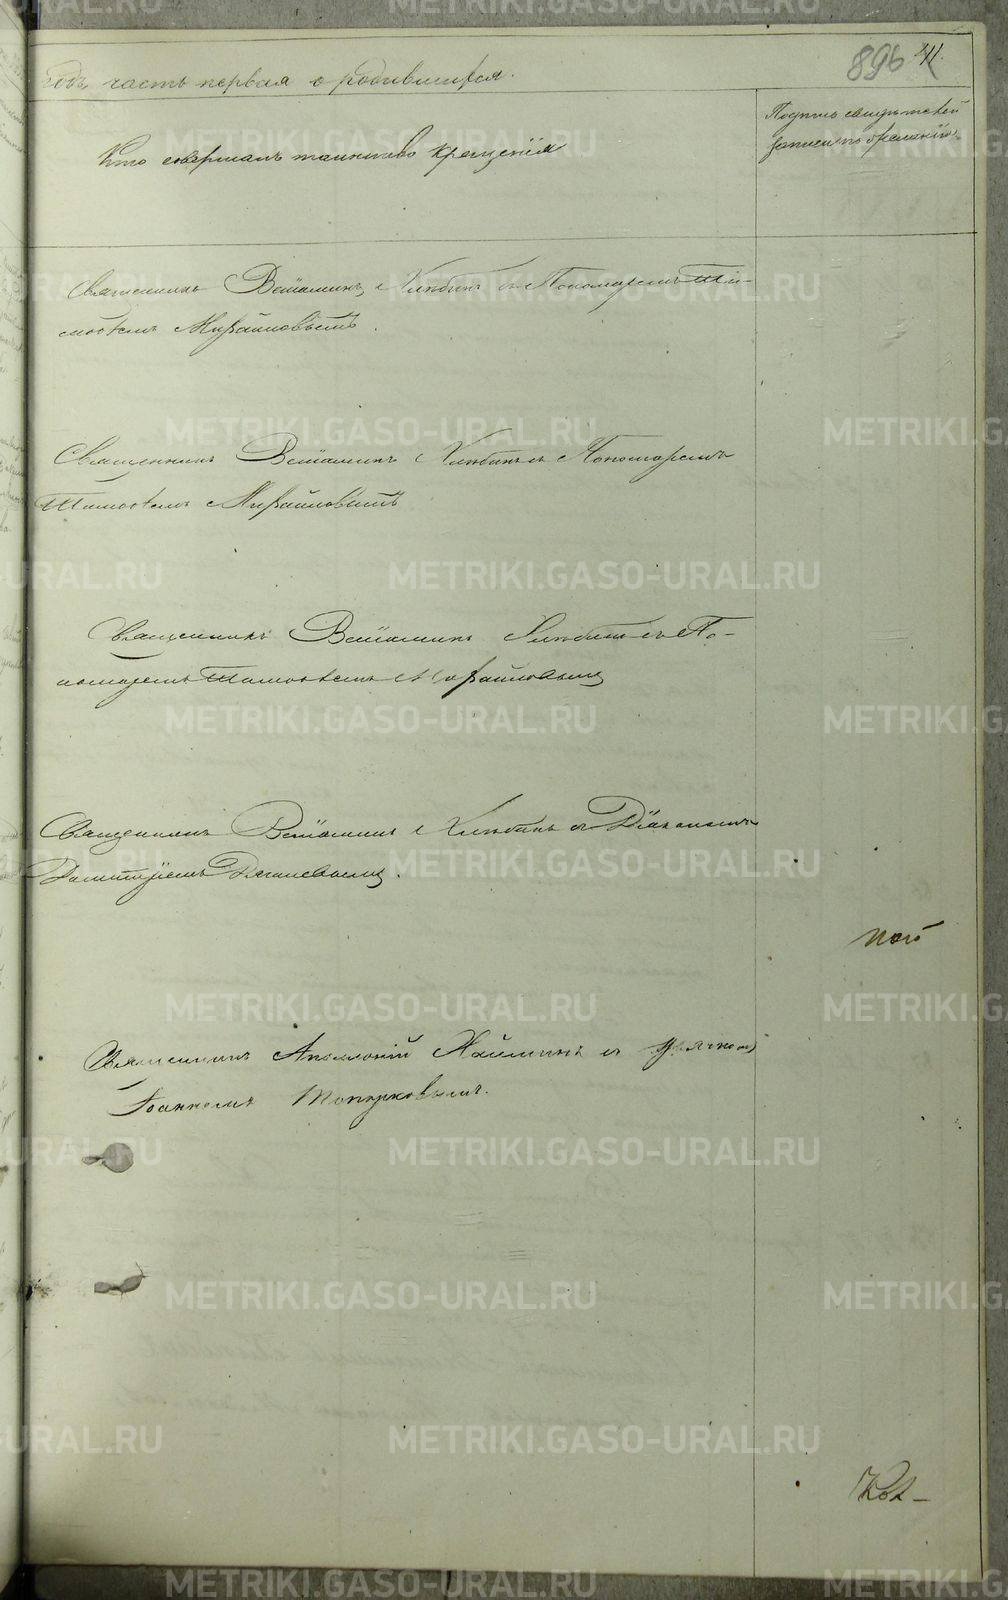 годъ, часть первая о родившихся.
896 41.
Кто совершалъ таинство крещенія
Подпись свидѣтелей
записи по желанію.
Священникъ Веніаминъ Хлѣбинъ съ Пономаремъ Ти-
моѳеемъ Михайловымъ.
Священникъ Веніаминъ Хлѣбинъ съ Пономаремъ
Тимоѳеемъ Михайловымъ
Священникъ Веніаминъ Хлѣбинъ съ По-
номаремъ Тимоѳеемъ Михайловымъ
Священникъ Веніаминъ Хлѣбинъ съ Діакономъ
Димитріемъ
Священникъ Аполлоній съ
Іоанномъ Топорковымъ.
METRIKI.GASO-URAL.RU